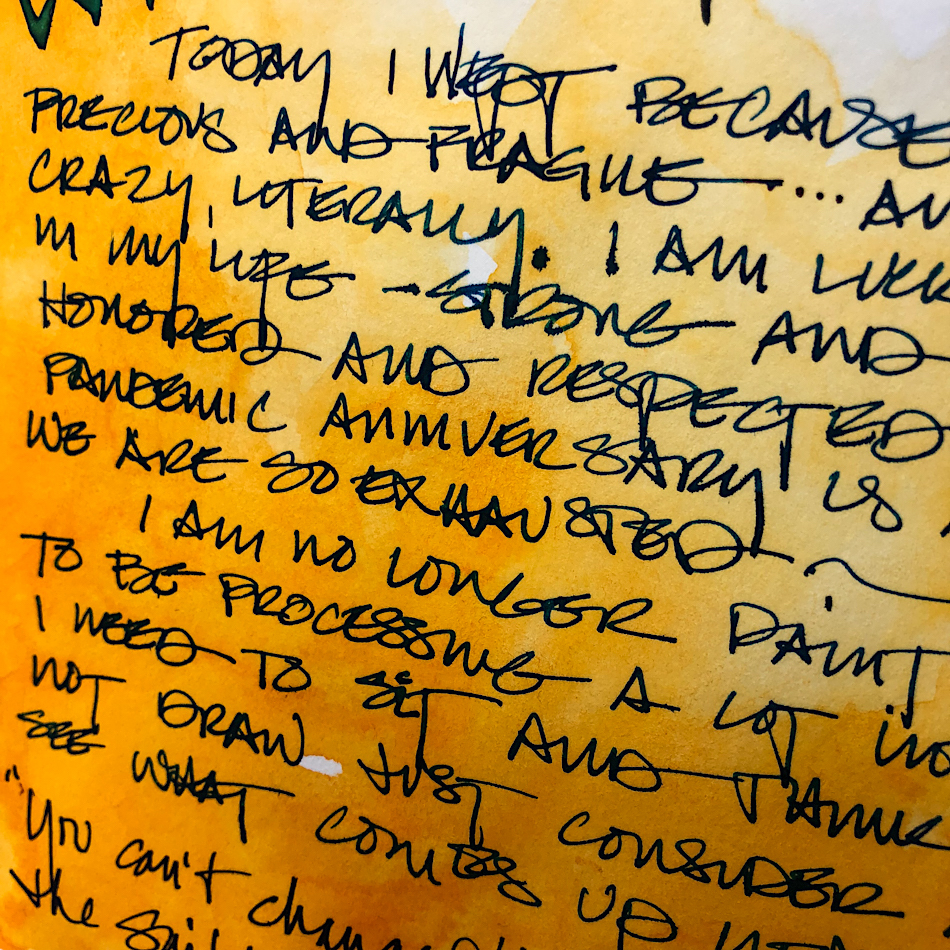 TODAY I WEPT BECAUSE
PRECIOUS AND FRAGILE — ... AN
CRAZY, LITERALLY. I AM LUCK
IN MY LIFE - STRONG AND
HONORED AND RESPECTED
PANDEMIC ANNIVERSARY IS
WE ARE SO EXHAUSTED —
I AM NO LONGER PAINT
TO BE PROCESSING A LOT INO
I NEED TO SIT AND THINK
NOT DRAW JUST CONSIDER
SEE WHAT COMES UP
"You can't change
the